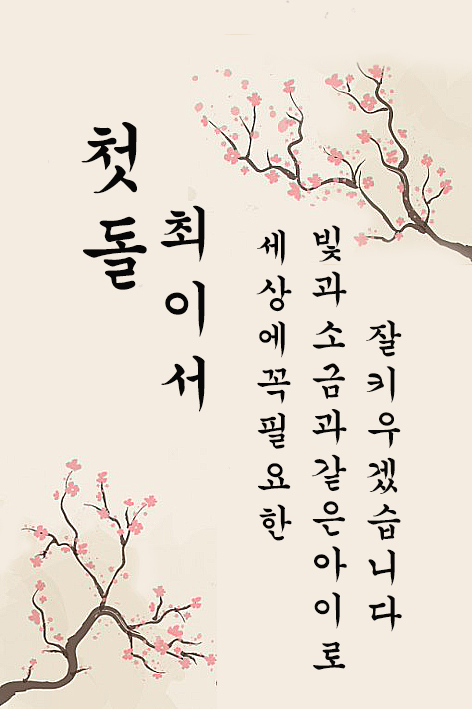 첫돌
최이서
세상에꼭필요한
빛과소금과같은아이로
잘키우겠습니다